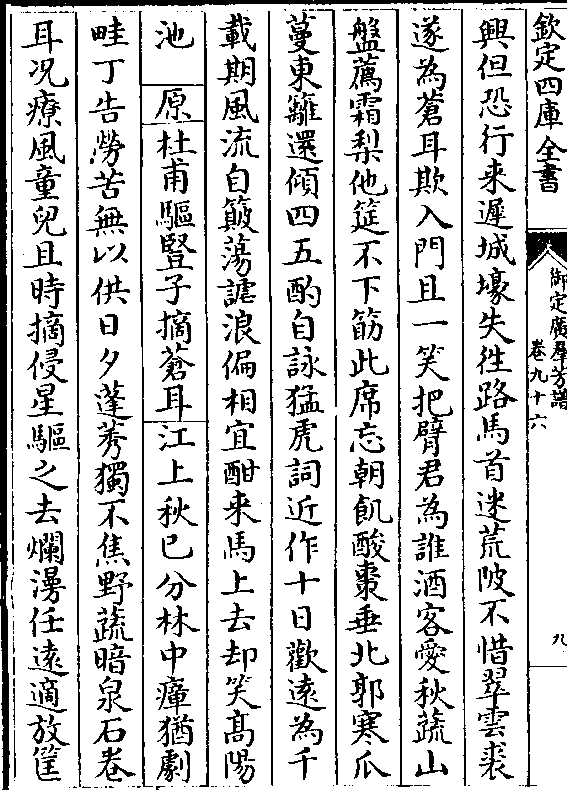 欽定四庫全書
御定廣羣芳譜
卷九十六
九
興但恐行來遲城壕失徃路馬首迷荒陂不惜翠雲裘
遂為蒼耳欺入門且一笑把臂君為誰酒客愛秋蔬山
盤薦霜梨他筵不下筯此席忘朝飢酸棗垂北郭寒瓜
蔓東籬還傾四五酌自詠猛虎詞近作十日歡遠為千
載期風流自簸蕩謔浪偏相宜酣來馬上去却笑髙陽
池
原
杜甫驅豎子摘蒼耳
江上秋已分林中瘴猶劇
畦丁告勞苦無以供日夕蓬莠獨不焦野蔬暗泉石卷
耳况療風童兒且時摘侵星驅之去爛漫任遠適放筐